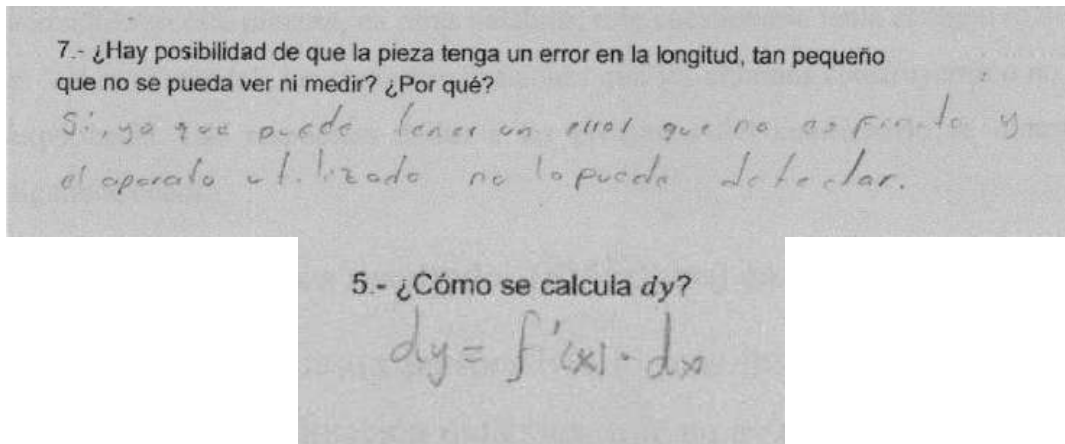 7.- ¿Hay posibilidad de que la pieza tenga un error en la longitud, tan pequeño
que no se pueda ver ni medir? ¿Por qué?
Si, ya que puede tener un error que no es y
el aparato utilizado no lo puede detectar.
5.- ¿Cómo se calcula dy?
dy = f'(x) · dx